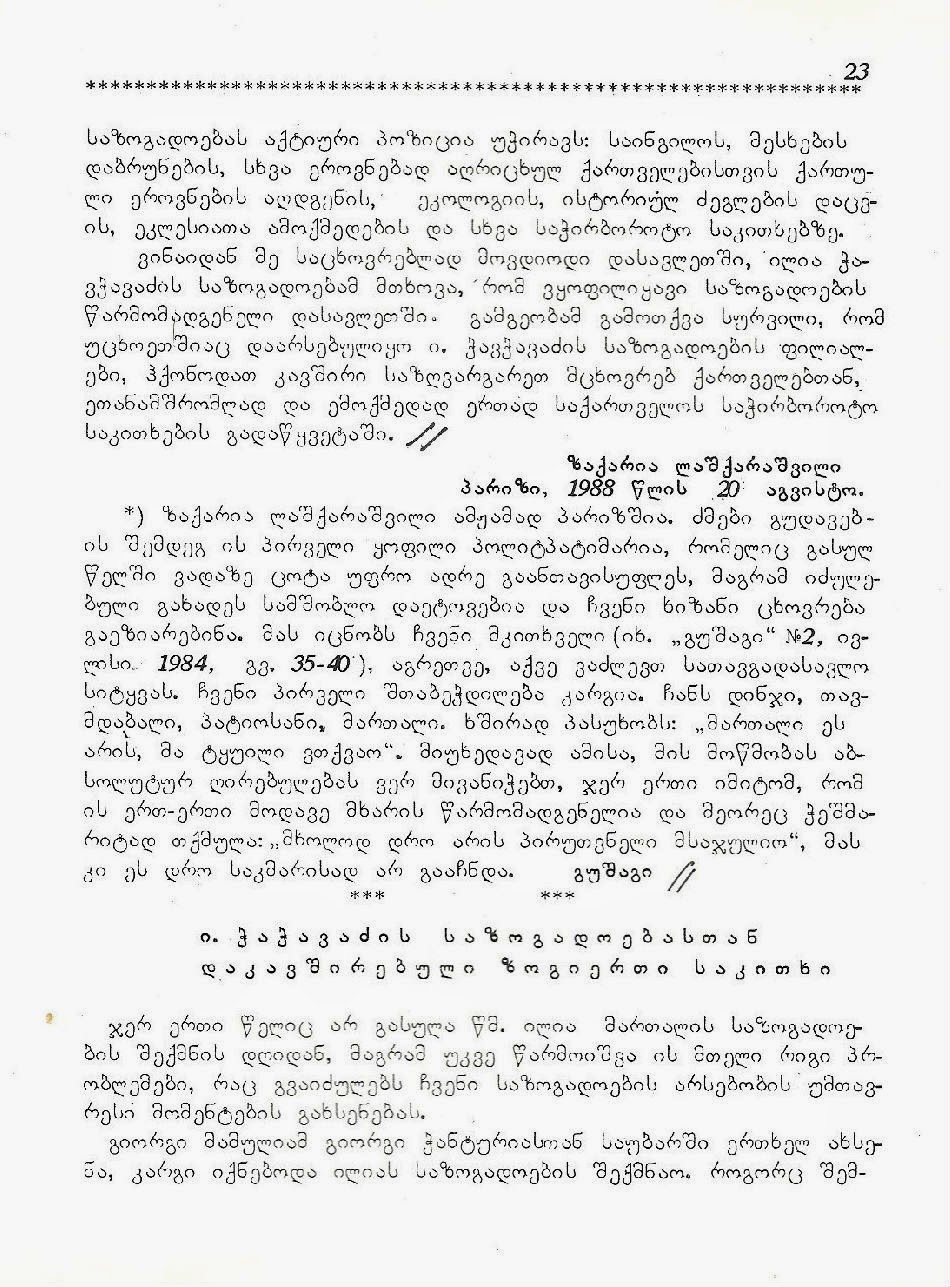 23
****************************************************************
საზოგადოებას აქტიური პოზიცია უჭირავს: საინგილოს, მესხების
დაბრუნების, სხვა ეროვნებად აღრიცხულ ქართველებისთვის ქართუ-
ლი ეროვნების აღდგენის, ეკოლოგიის, ისტორიულ ძეგლების დაცვ-
ის, ეკლესიათა ამოქმედების და სხვა საჭირბოროტო საკითხებზე.
ვინაიდან მე საცხოვრებლად მოვდიოდი დასავლეთში, ილია ჭა-
ვჭავაძის საზოგადოებამ მთხოვა, რომ ვყოფილიყავი საზოგადოების
წარმომადგენელი დასავლეთში. გამგეობამ გამოთქვა სურვილი, რომ
უცხოეთშიაც დაარსებულიყო ი. ჭავჭავაძის საზოგადოების ფილიალ-
ები, ჰქონოდათ კავშირი საზღვარგარეთ მცხოვრებ ქართველებთან,
ეთანამშრომლად და ემოქმედად ერთად საქართველოს საჭირბოროტო
საკითხების გადაწყვეტაში. //
ზაქარია ლაშქარაშვილი
პარიზი, 1988 წლის 20 აგვისტო.
*) ზაქარია ლაშქარაშვილი ამჟამად პარიზშია. ძმები გუდავებ-
ის შემდეგ ის პირველი ყოფილი პოლიტპატიმარია, რომელიც გასულ
წელში ვადაზე ცოტა უფრო ადრე გაანთავისუფლეს, მაგრამ იძულე-
ბული გახადეს სამშობლო დაეტოვებია და ჩვენი ხიზანი ცხოვრება
გაეზიარებინა. მას იცნობს ჩვენი მკითხველი (იხ. „გუშაგი“ №2, ივ-
ლისი. 1984, გვ. 35-40), აგრეთვე, აქვე ვაძლევთ სათავგადასავლო
სიტყვას. ჩვენი პირველი შთაბეჭდილება კარგია. ჩანს დინჯი, თავ-
მდაბალი, პატიოსანი, მართალი. ხშირად პასუხობს: „მართალი ეს
არის, მა ტყუილი ვთქვაო“. მიუხედავად ამისა, მის მოწმობას აბ-
სოლუტურ ღირებულებას ვერ მივანიჭებთ, ჯერ ერთი იმიტომ, რომ
ის ერთ-ერთი მოდავე მხარის წარმომადგენელია და მეორეც ჭეშმა-
რიტად თქმულა: „მხოლოდ დრო არის პირუთვნელი მსაჯულიო“, მას
კი ეს დრო საკმარისად არ გააჩნდა. გუშაგი //
*** ***
ი. ჭაჭავაძის საზოგადოებასთან
დაკავშირებული ზოგიერთი საკითხი
ჯერ ერთი წელიც არ გასულა წმ. ილია მართალის საზოგადოე-
ბის შექმნის დღიდან, მაგრამ უკვე წარმოიშვა ის მთელი რიგი პრ-
ობლემები, რაც გვაიძულებს ჩვენი საზოგადოების არსებობის უმთავ-
რესი მომენტების გახსენებას.
გიორგი მამულიამ გიორგი ჭანტურიასთან საუბარში ერთხელ ახსე-
ნა, კარგი იქნებოდა ილიას საზოგადოების შექმნაო. როგორც შემ-